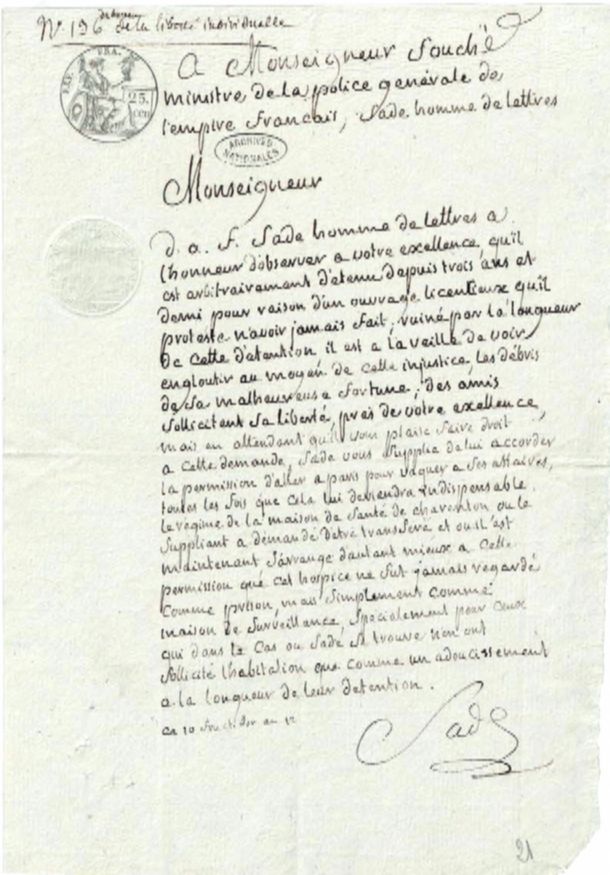 N° 196 de la liberté individuelle
TIM. FRA.
25.
cen
A Monseigneur fouché
ministre de la police générale de
l'empire francais, Sade homme de lettres
ARCHIVES
NATIONALES
Monseigneur
d. a. f. Sade homme de lettres a
l'honneur d'observer a votre excellence, qu'il
est arbitrairement détenu depuis trois ans et
demi pour raison d'un ouvrage licentieux qu'il
proteste n'avoir jamais fait. ruiné par la longueur
de cette détention il est a la veille de voir
engloutir au moyen de cette injustice, les débris
de sa malheureuse fortune; des amis
sollicitent sa liberté, près de votre excellence,
mais en attendant qu'il vous plaise faire droit
a cette demande, Sade vous supplie de lui accorder
la permission d'aller a paris pour vaquer a ses affaires,
toutes les fois que cela lui deviendra indispensable.
le régime de la maison de santé de charenton ou le
suppliant a demandé d'être transféré et ou il est
maintenant s'arrange d'autant mieux a cette
permission que cet hospice ne fut jamais regardé
comme prison, mais simplement comme
maison de surveillance, spécialement pour ceux
qui dans le cas ou Sade se trouve n'en ont
sollicité l'habitation que comme un adoucissement
a la longueur de leur détention.
ce 10 fructidor an 12
Sade
21